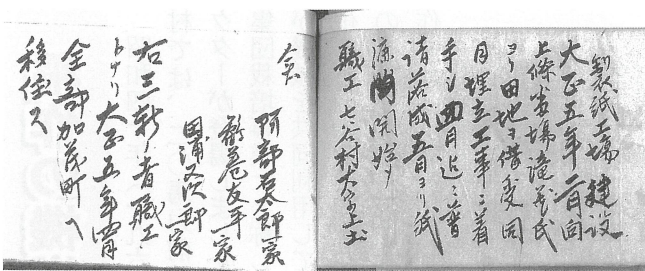 製紙工場建設
大正五年二月向
上條安場滝茂氏
ヨリ田地ヲ借受同
月埋立工事ニ着
手シ四月迄ニ普
請落成五月ヨリ紙
漉開始ノ
職工七谷村大字上土
倉
阿部石太郎一家
友平家
田浦又次郎家
右三軒ノ者職工
トナリ大正五年四月
全部加茂町ヘ
移住ス